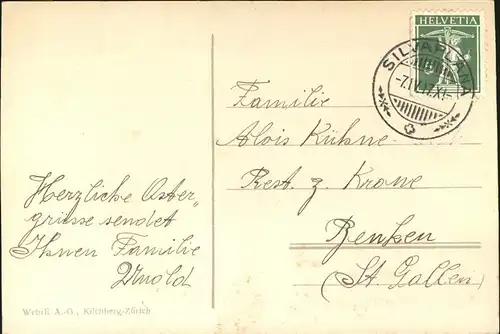 HELVETIA
SILVAPLANA
-7.IV.17.XI-
Familie
Alois Kühne
Rest. z. Krone
Benken
(St. Gallen)
Herzliche Oster„
grüsse sendet
Ihnen Familie
Arnold
Wehrli A.-G., Kilchberg-Zürich